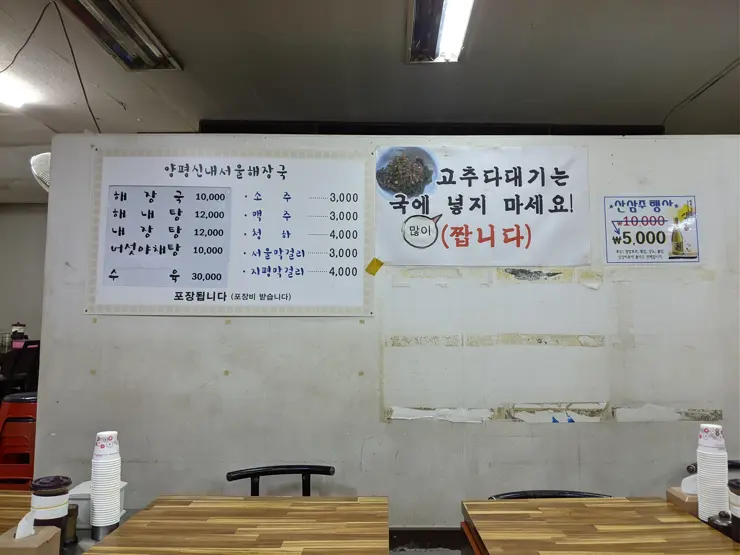 양평신내서울해장국
해 장 국 10,000
해 내 탕 12,000
내 장 탕 12,000
버섯야채탕 10,000
수 육 30,000
· 소 주 3,000
· 맥 주 3,000
· 청 하 4,000
· 서울막걸리 3,000
· 지평막걸리 4,000
포장됩니다 (포장비 받습니다)
고추다대기는
국에 넣지 마세요!
많이
(짭니다)
산삼주행사
₩10,000
₩5,000